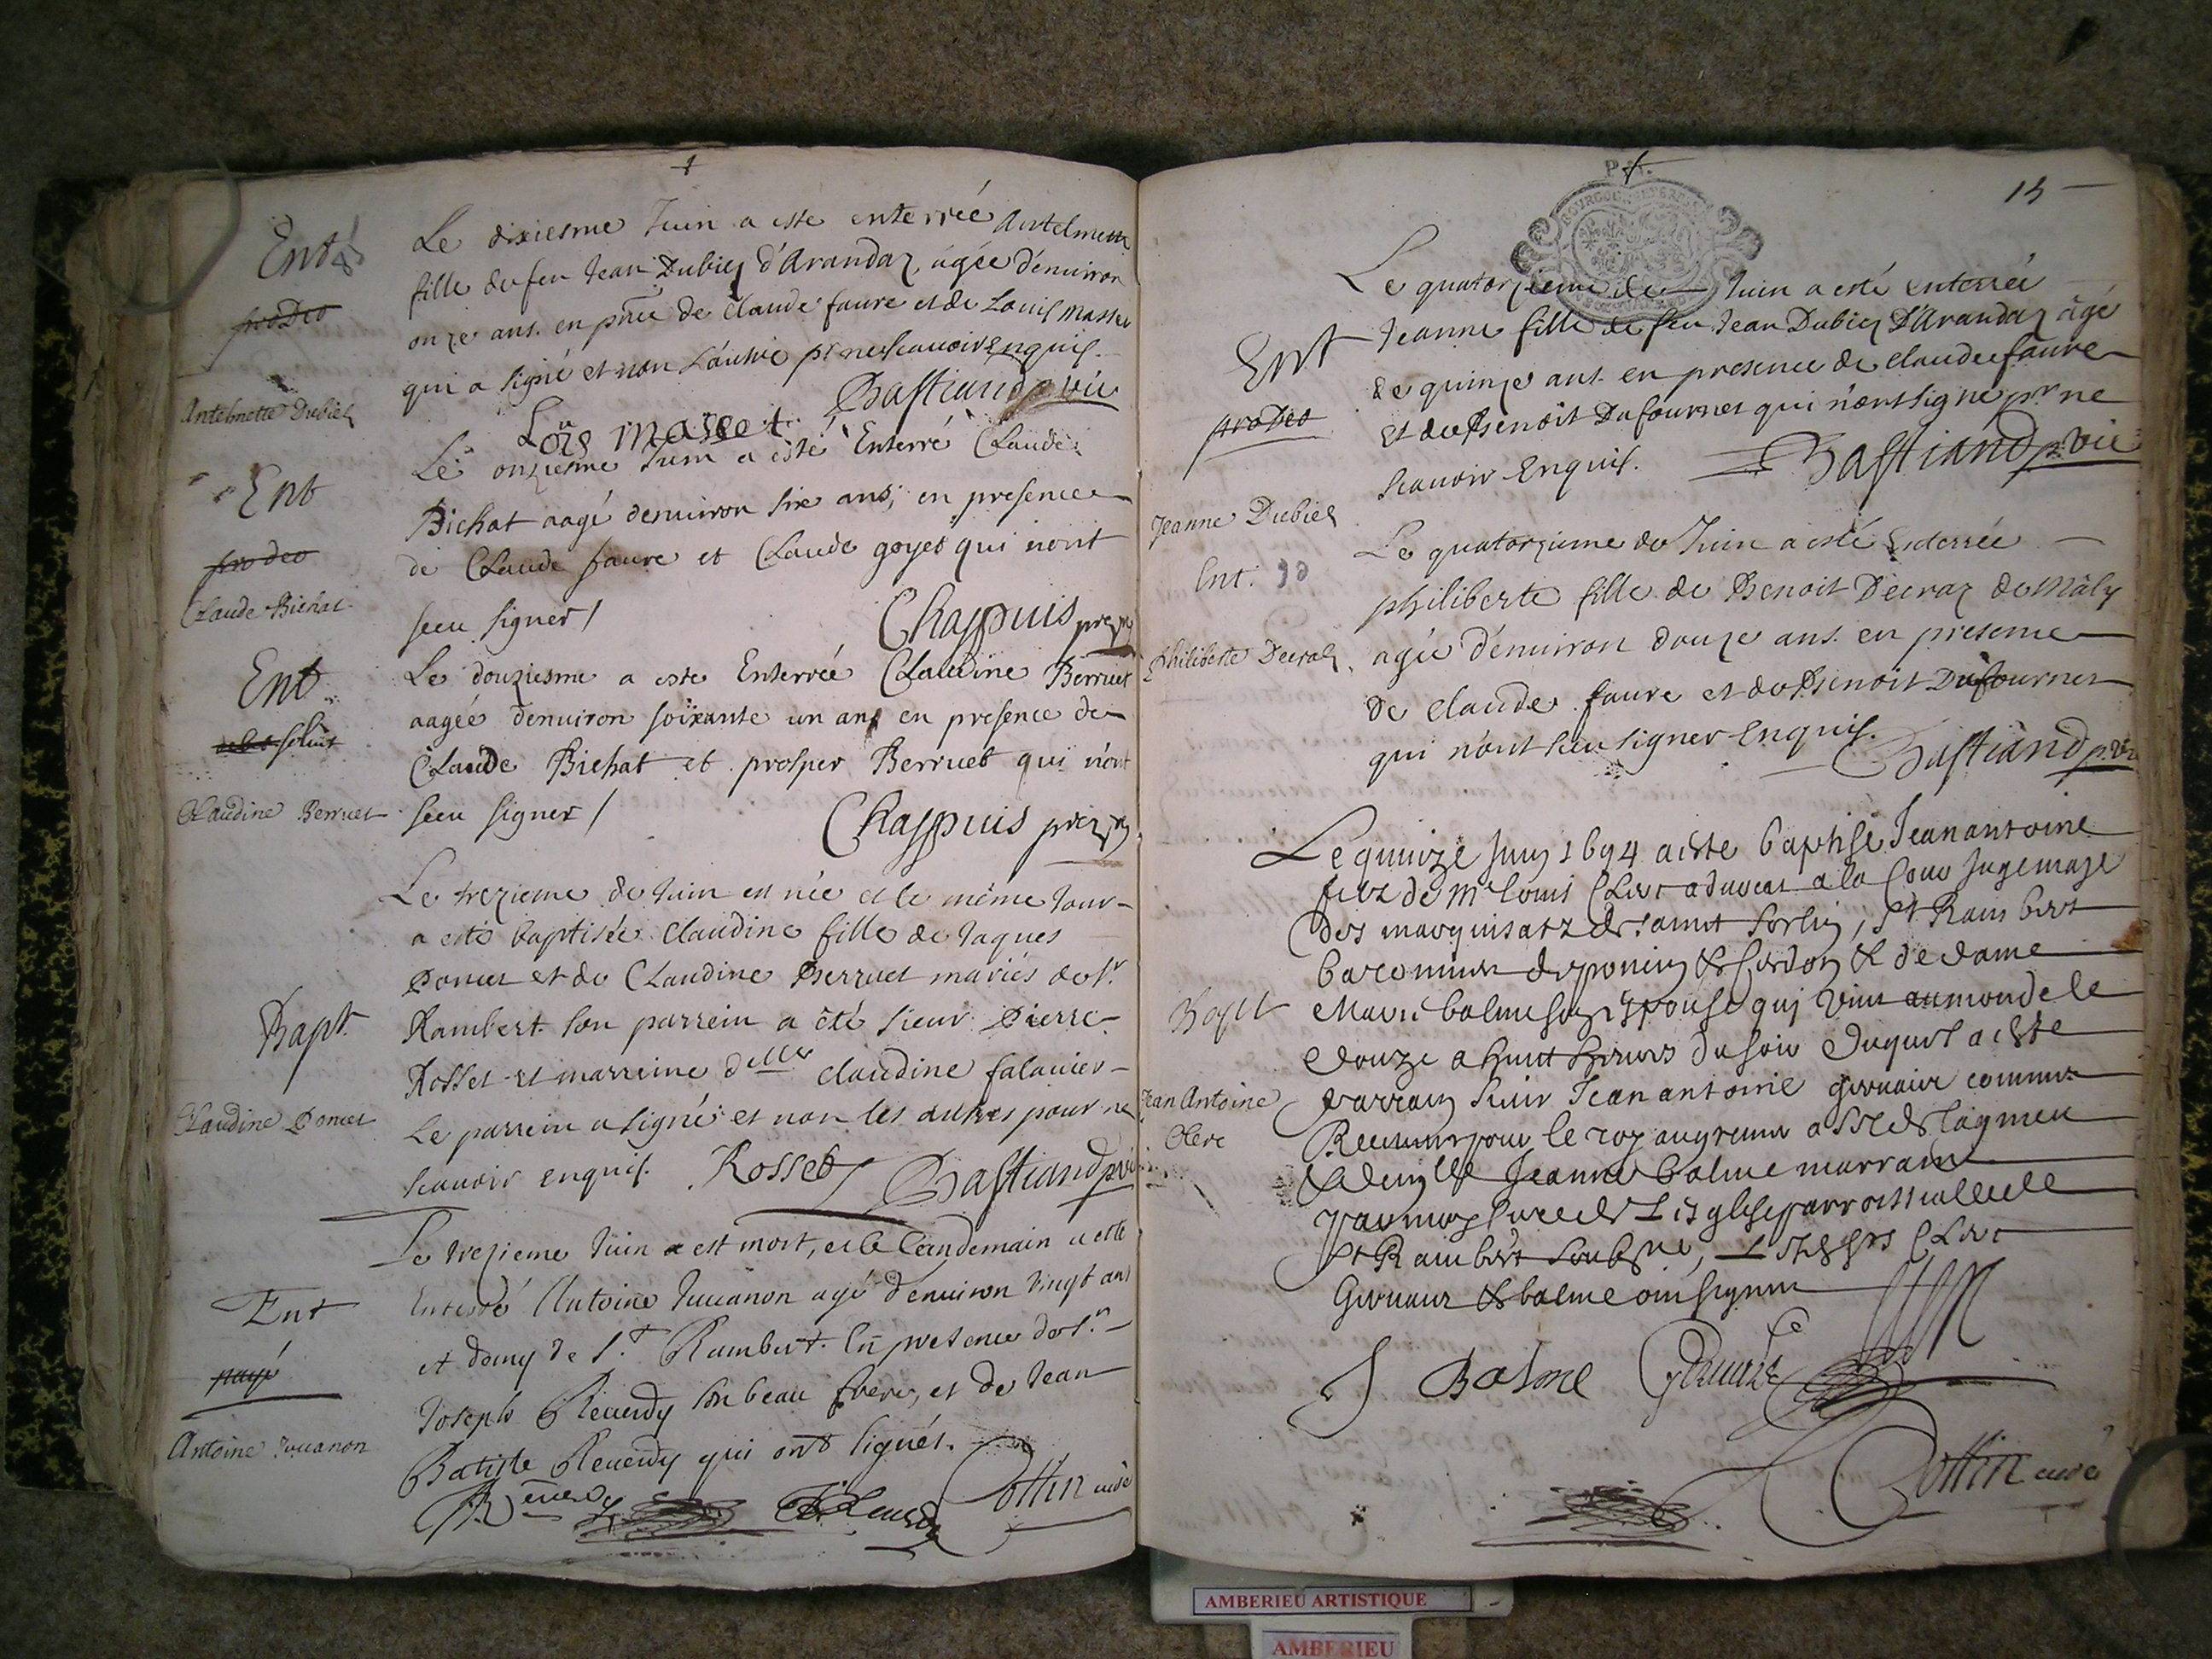 Ent
pro Deo
Antelmette Dubiez
Le dixiesme Juin a este enterrée Antelmette
fille de feu Jean Dubiez d'Arandaz, agée d'enuiron
onze ans. en pnce de Claude faure et de Louis Masset
qui a signé et non l'autre pr ne scauoir Enquis.
Bastiand p. vic
Lois maset
Ent
pro deo
Claude Bichat
Le onziesme Juin a esté Enterré Claude
Bichat aagé denuiron six ans, en presence
de Claude faure et Claude goyet qui n'ont
sceu signer /
Chappuis
Ent
solvit
Claudine Berruet
Le douziesme a este Enterrée Claudine Berruet
aagée denuiron soixante un ans en presence de
Claude Bichat et prosper Berruet qui n'ont
sceu signer /
Chappuis
Bapt
Claudine Poncet
Le trezieme de Juin est née et le même Jour
a esté baptisée Claudine fille de Jaques
Poncet et de Claudine Berruet mariés de St
Rambert son parrein a êté sieur Pierre
Rosset et marreine dlle Claudine falauier
Le parrein a signé et non les autres pour ne
scauoir enquis. Rosset Bastiand p vic
Ent
payé
Antoine Juuanon
Le trezieme Juin est mort, et le Lendemain a esté
Enterré Antoine Juuanon agé d'enuiron vingt ans
et demy de St Rambert. En presence de Sr
Joseph Reuerdy son beau frere, et de Jean
Batiste Reuerdy qui ont signés.
Reuerdy Reuerdy Cottin curé
15
Ent
pro Deo
Jeanne Dubiez
Le quatorzieme de Juin a esté enterrée
Jeanne fille de feu Jean Dubiez D'Arandaz âgé
de quinze ans. en presence de claude faure
et de Benoit Dufournet qui n'ont signé pr ne
scauoir Enquis. Bastiand p. vic
Ent.
Philiberte Decraz
Le quatorzieme de Juin a esté Enterrée
philiberte fille de Benoit Decraz
agée d'enuiron douze ans. en presence
de claude faure et de Benoit Dufournet
qui n'ont sceu signer Enquis. Bastiand p. vic
Bapt
Jean Antoine
Clerc
Le quinze Juin 1694 a este baptisé Jean antoine
filz de Mr Louis Clerc aduocat a la Cour Juge maje
des marquisatz de saint Sorlin, St Rambert
baronnies de poncin & Cerdon & de dame
Marie balme son Espouse qui vint au monde le
douze a huict heures du soir duquel a este
parrain sieur Jean antoine geruaire commis
Receueur pour le roy au grenier a sel de lagnieu
& demlle Jeanne balme marraine
par moy cure de L'esglise parrochialle de
St Rambert soubsne, Lesdts Clerc
Geruaire & balme ont signer
J Balme
Cottin curé
AMBERIEU ARTISTIQUE
AMBERIEU